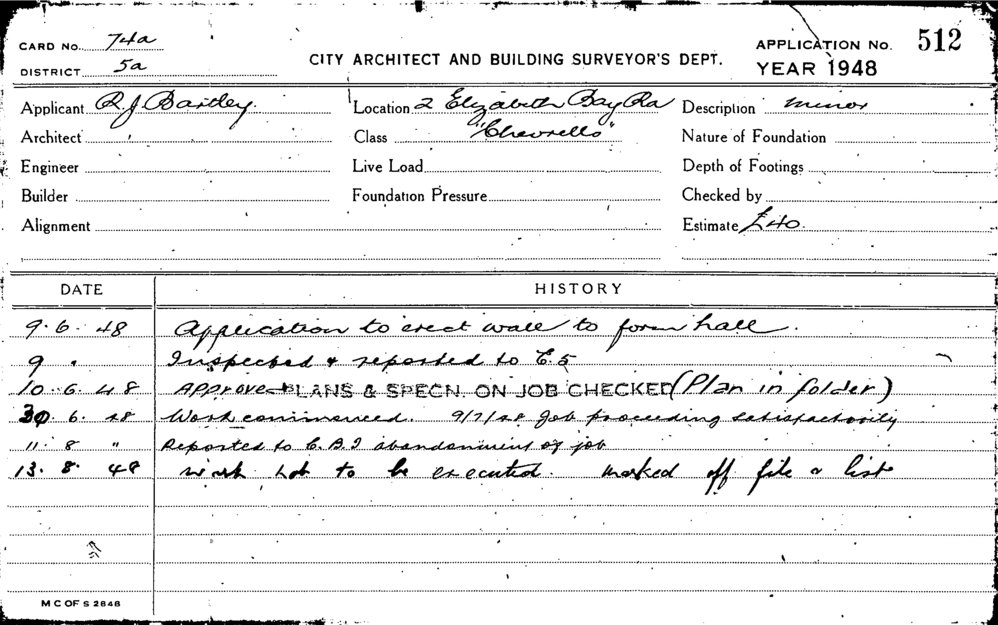 CARD No. 74a
DISTRICT 5a
CITY ARCHITECT AND BUILDING SURVEYOR'S DEPT.
APPLICATION No. 512
YEAR 1948
Applicant R. J. Bartley. Location 2 Elizabeth Bay Rd Description minor
Architect Class "Chevrells" Nature of Foundation
Engineer Live Load Depth of Footings
Builder Foundation Pressure Checked by
Alignment Estimate £40.
DATE HISTORY
9.6.48 Application to erect wall to form hall.
9 " Inspected & reported to E.5
10.6.48 Approve PLANS & SPECN. ON JOB CHECKED (Plan in folder)
30.6.48 Work commenced. 9/7/48 Job proceeding satisfactorily
11.8 " Reported to C.B.I abandonment of job
13.8.48 work not to be executed. marked off file & list
M C OF S 2848